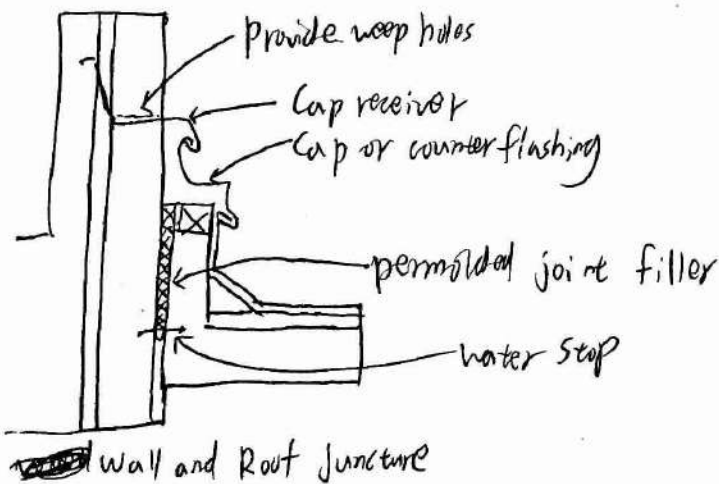 Provide weep holes
Cap receiver
Cap or counter flashing
permolded joint filler
water stop
Wall and Roof Juncture